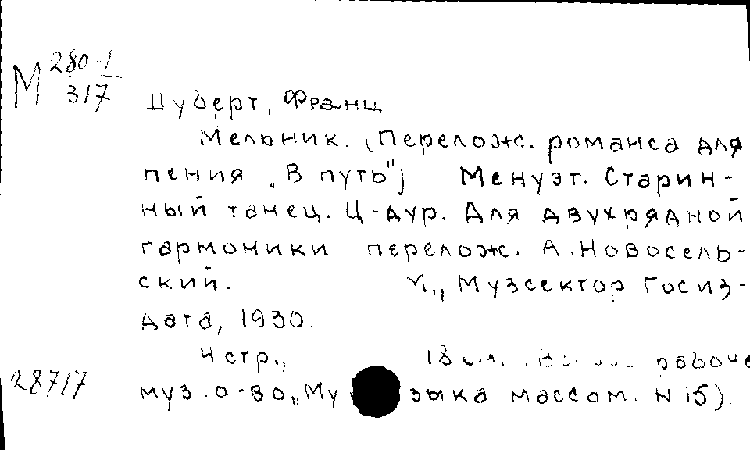 М 280-1
317
Шуберт, Франц
Мельник. (Перелож. романса для
пения "В путь") Менуэт. Старин-
ный танец. Ц-дур. Для двухрядной
гармоники перелож. А. Новосель-
ский. Музсектор Госиз-
дата, 1930.
4 стр., 18
28717
муз. о-во, Му зыка массам. N 15).